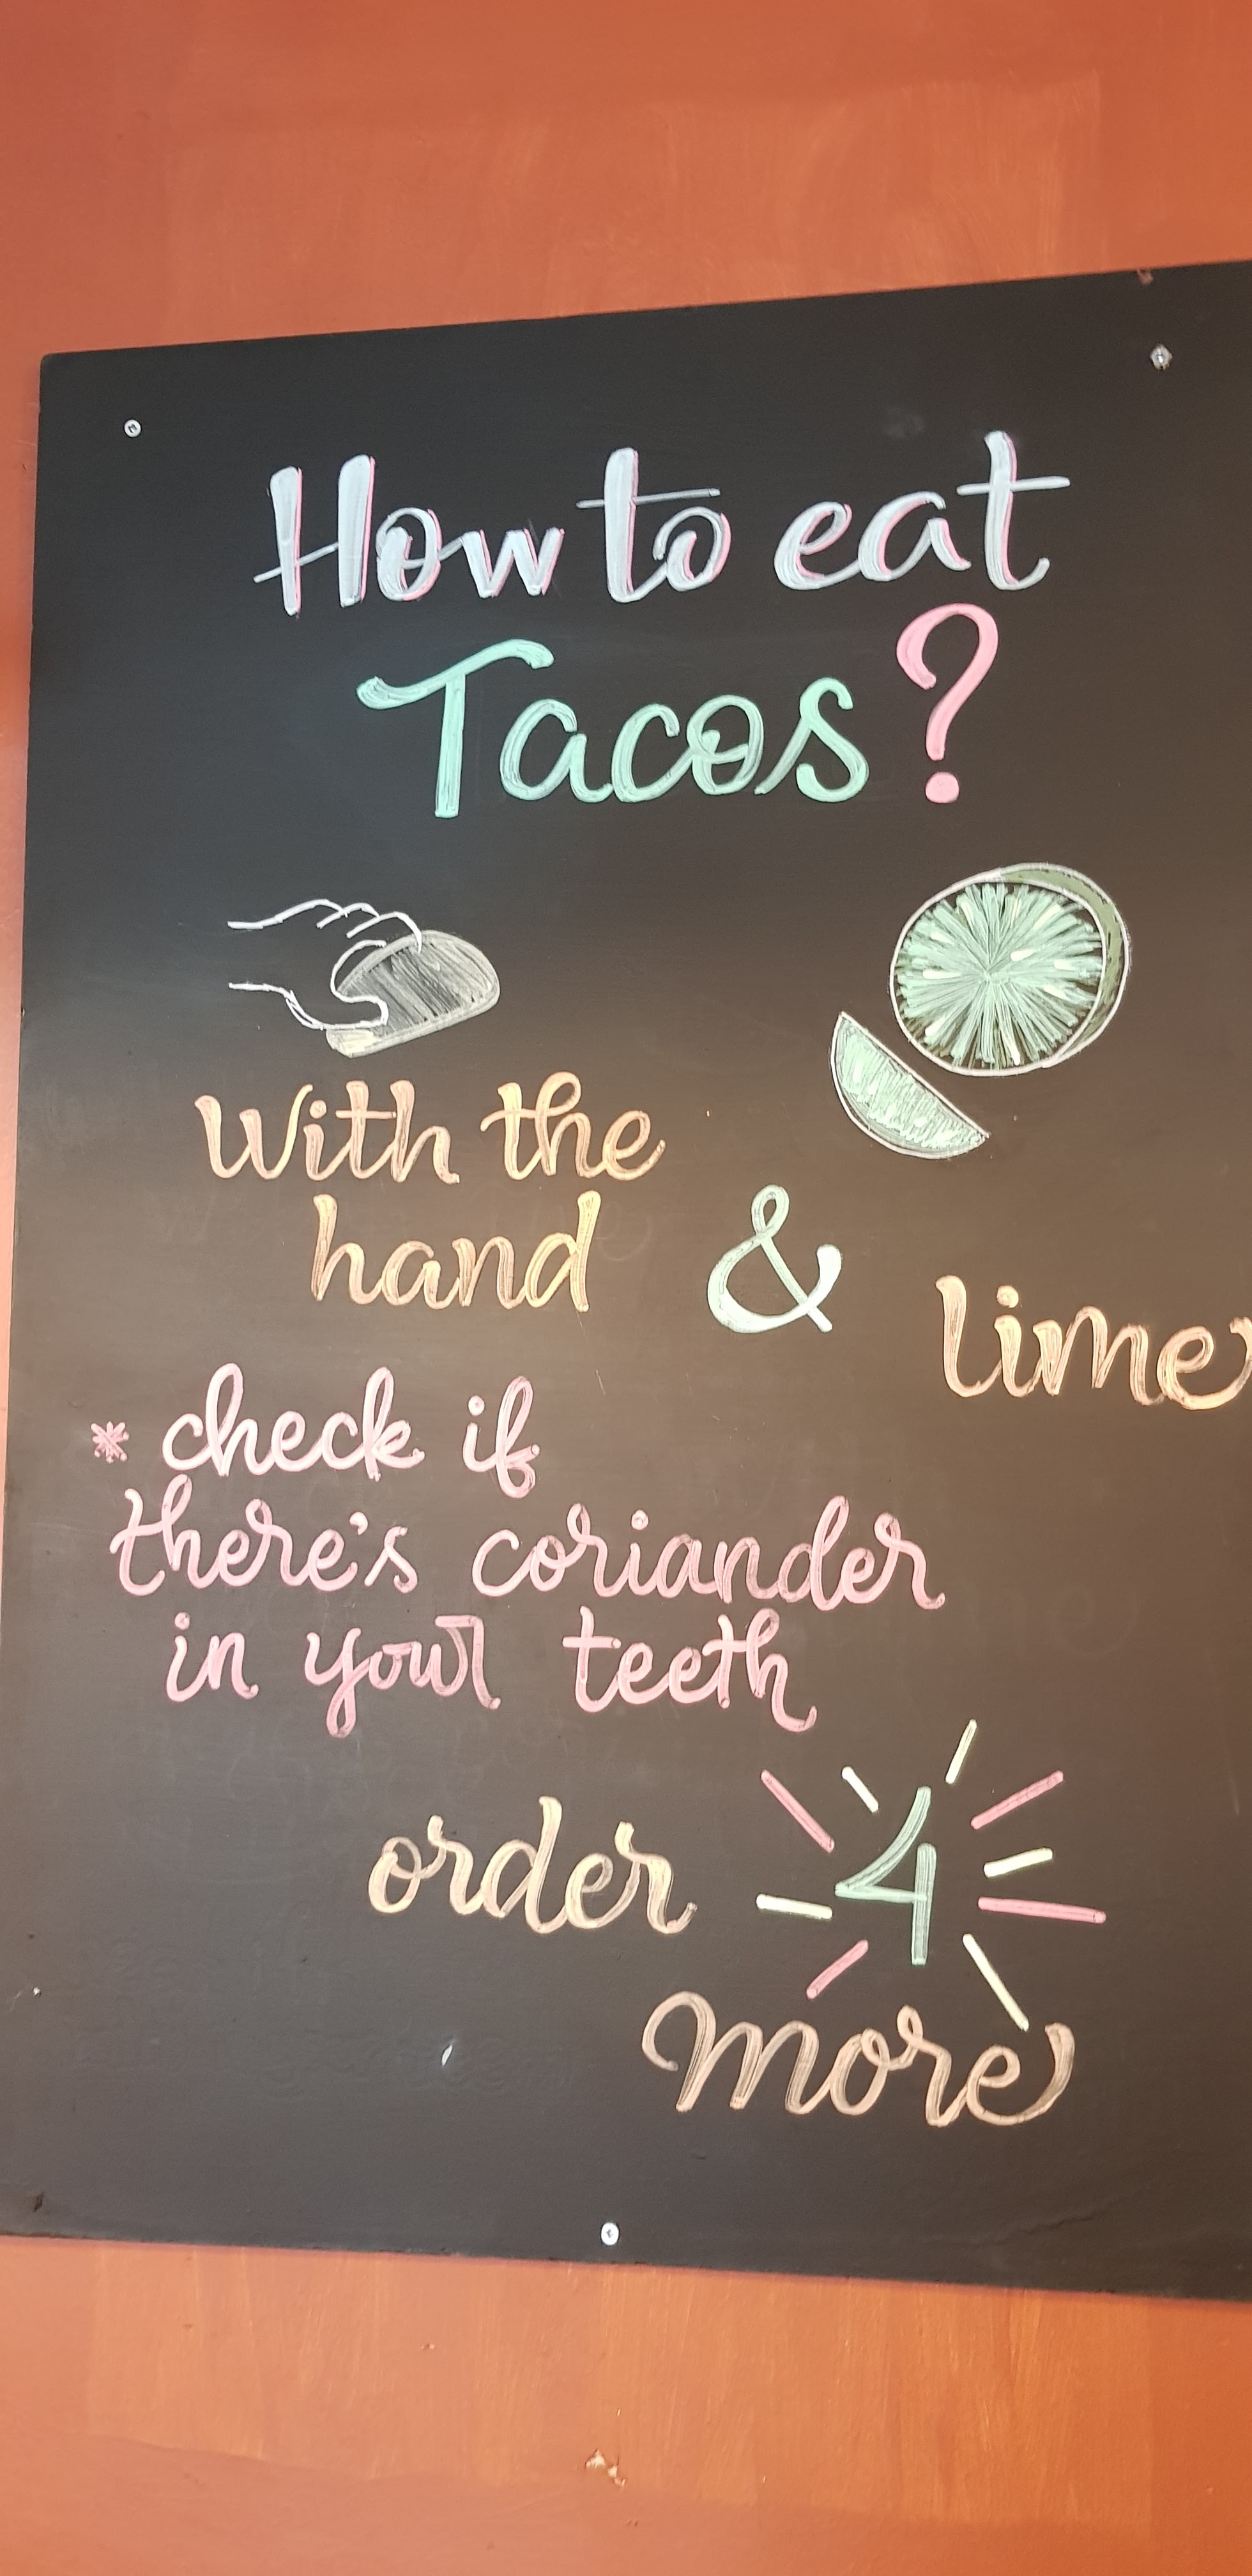 How to eat
Tacos?
With the
hand & lime
* check if
there's coriander
in your teeth
order 4
more